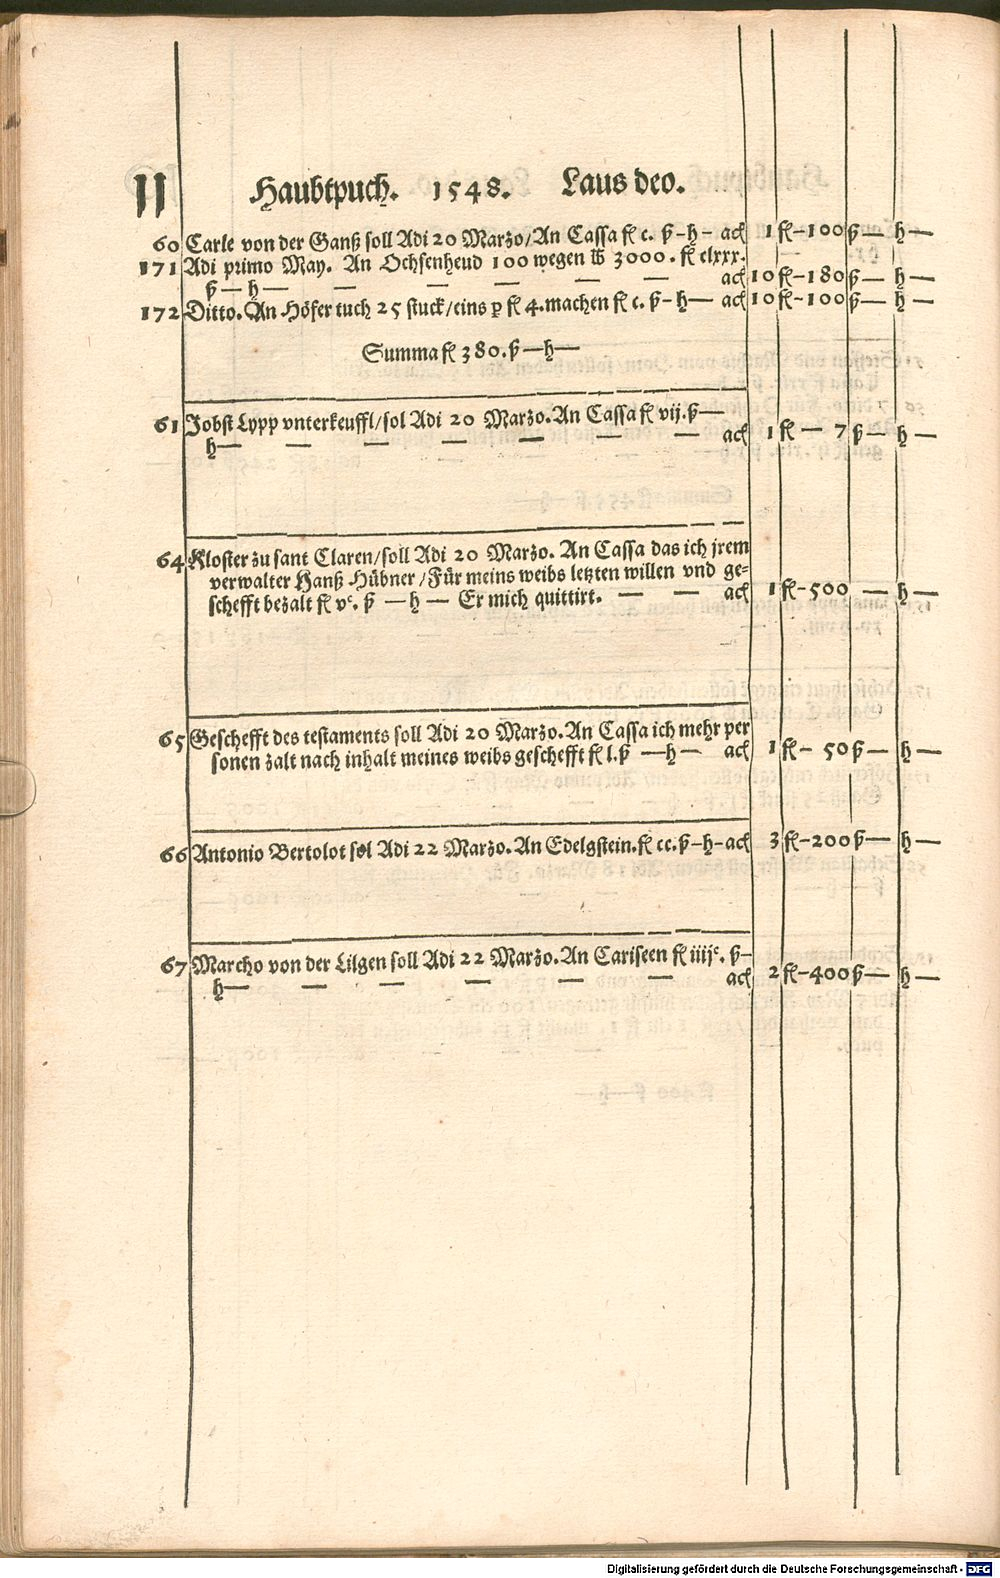 11 Haubtpuch. 1548. Laus deo.
60 Carle von der Ganß soll Adi 20 Marzo/An Cassa fl c. ß–h– ack 1 fl–100 ß— h—
171 Adi primo May. An Ochsenheud 100 wegen ℔ 3000. fl clxxx.
ß—h— — — — — — ack 10 fl–180 ß— h—
172 Ditto. An Höfer tuch 25 stuck/eins ꝑ fl 4. machen fl c. ß–h— ack 10 fl–100 ß— h—
Summa fl 380. ß—h—
61 Jobst Lypp vnterkeuffl/sol Adi 20 Marzo. An Cassa fl vij. ß—
h— — — — — — ack 1 fl— 7 ß— h—
64 Kloster zu sant Claren/soll Adi 20 Marzo. An Cassa das ich jrem
verwalter Hanß Hübner/Für meins weibs letzten willen vnd ge-
schefft bezalt fl vᶜ. ß —h— Er mich quittirt. — — ack 1 fl–500 — h—
65 Geschefft des testaments soll Adi 20 Marzo. An Cassa ich mehr per
sonen zalt nach inhalt meines weibs geschefft fl l. ß —h— ack 1 fl– 50 ß— h—
66 Antonio Bertolot sol Adi 22 Marzo. An Edelgstein. fl cc. ß–h–ack 3 fl–200 ß— h—
67 Marcho von der Lilgen soll Adi 22 Marzo. An Cariseen fl iiijᶜ. ß–
h— — — — — — ack 2 fl–400 ß— h—
Digitalisierung gefördert durch die Deutsche Forschungsgemeinschaft - DFG